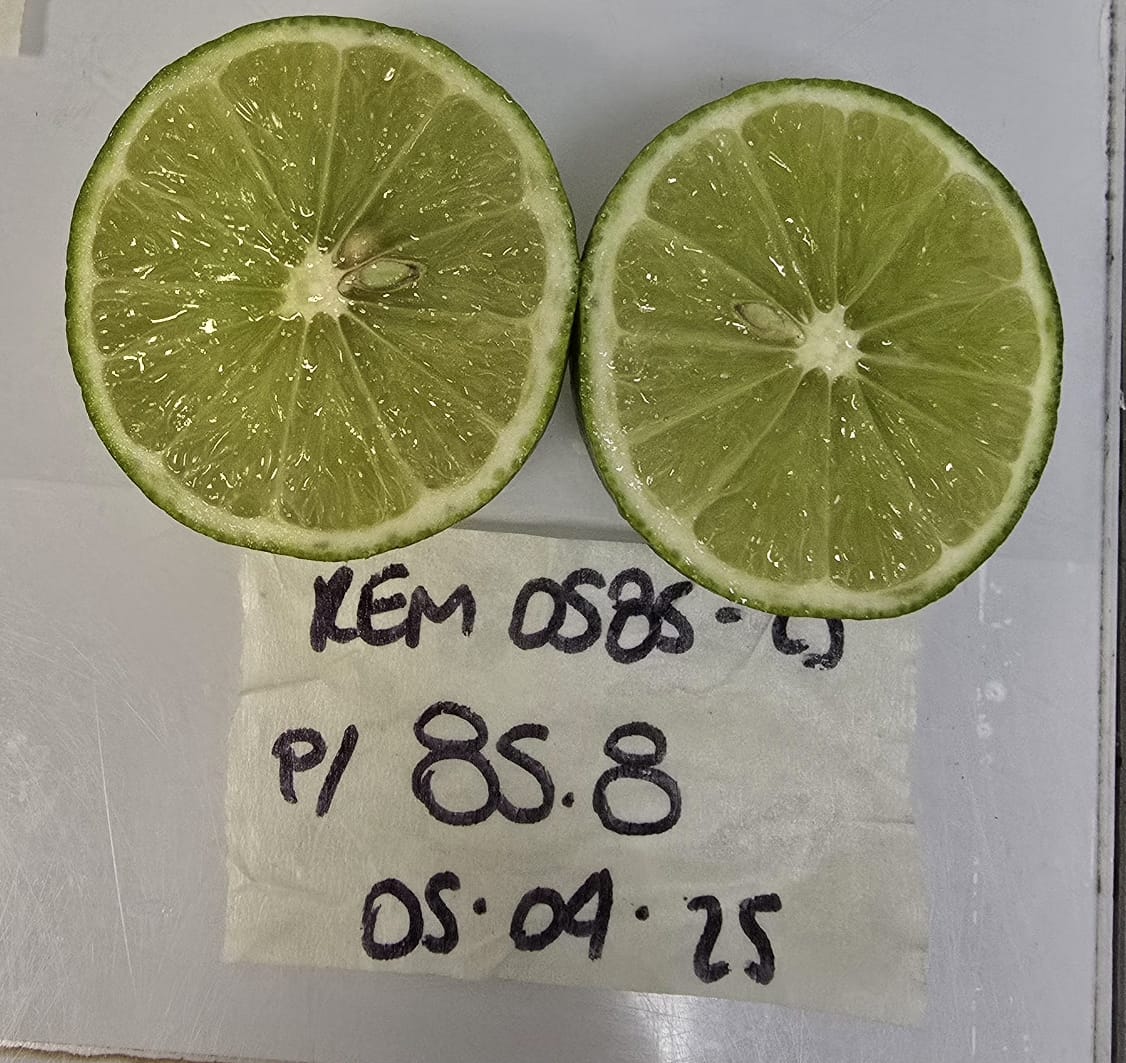 REM 0585-25
P/ 85.8
05.04.25